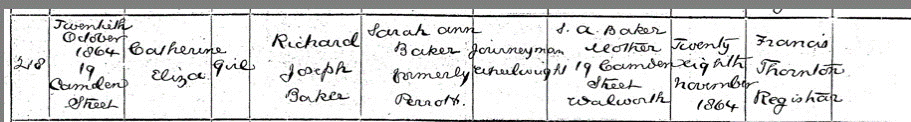 218
Twentieth
October
1864
19
Camden
Street
Catherine
Eliza
Girl
Richard
Joseph
Baker
Sarah Ann
Baker
formerly
Perrott.
Journeyman
Wheelwright
S. A. Baker
Mother
19 Camden
Street
Walworth
Twenty
eighth
November
1864
Francis
Thornton
Registrar